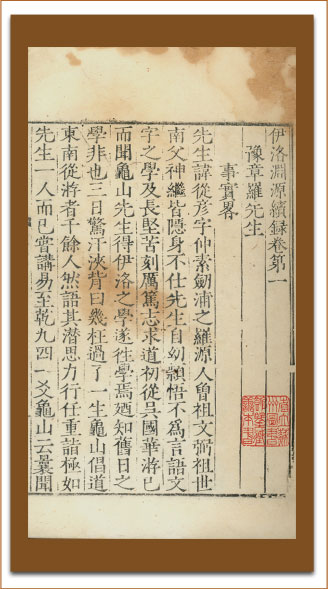 伊洛淵源續錄卷第一
豫章羅先生
事實畧
先生諱從彥字仲素劒浦之羅源人曾祖文弼祖世
南父神繼皆隱身不仕先生自幼頴悟不爲言語文
字之學及長堅苦刻厲篤志求道初從吳國華游已
而聞龜山先生得伊洛之學遂徃學焉廼知舊日之
學非也三日驚汗浹背曰幾枉過了一生龜山倡道
東南從游者千餘人然語其潛思力行任重詣極如
先生一人而已嘗講易至乾九四一爻龜山云曩聞